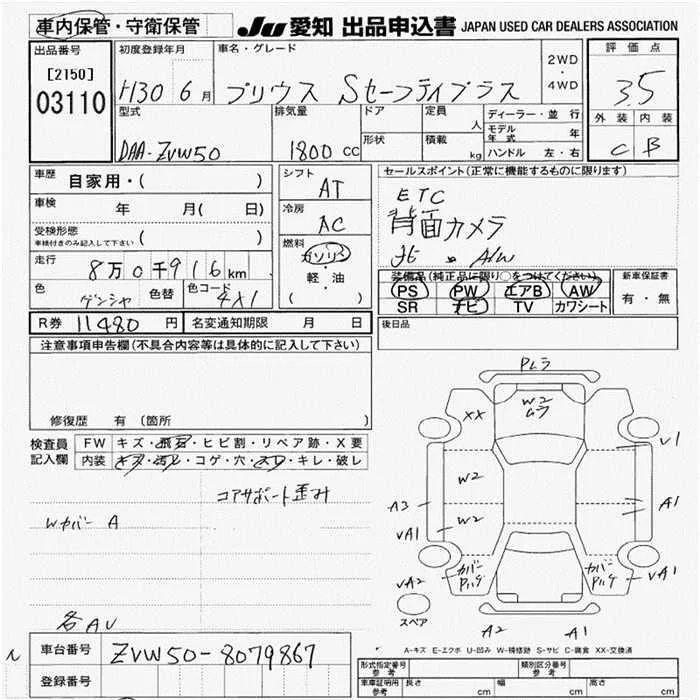 車内保管・守衛保管
JU愛知 出品申込書 JAPAN USED CAR DEALERS ASSOCIATION
出品番号
[2150]
03110
初度登録年月
H30 6月
車名・グレード
プリウス Sセーフティプラス
2WD
・
4WD
評価点
3.5
外装 内装
C B
型式
DAA-ZVW50
排気量
1800 CC
ドア
形状
定員 人
積載 kg
ディーラー・並行
モデル年式 年
ハンドル 左・右
車歴 自家用・( )
車検 年 月( 日)
受検形態
車検付きのみ記入して下さい ( )
走行 8万0千916km
色 ゲンシャ 色替 色コード 4X1
シフト AT
冷房 AC
燃料
ガソリン
・
軽・油
( )
セールスポイント(正常に機能するものに限ります)
ETC
背面カメラ
A/W
装備品(純正品に限り○をつけてください)
PS PW エアB AW
SR ナビ TV カワシート
新車保証書
有・無
R券 11480円 名変通知期限 月 日
後日品
注意事項申告欄(不具合内容等は具体的に記入して下さい)
修復歴 有 (箇所 )
検査員記入欄
FW キズ・飛石・ヒビ割・リペア跡・X要
内装 キズ・汚レ・コゲ・穴・スレ・キレ・破レ
コアサポート歪み
Wカバー A
各AU
車台番号 ZVW50-8079867
登録番号
Pムラ
XX
W2
ムラ
U1
W2
A3
A1
W2
VA1
カバー
Pハゲ
カバー
Pハゲ
VA2
VA1
スペア
A2
A1
A-キズ E-エクボ U-凹み W-補修跡 S-サビ C-腐食 XX-交換済
形式指定番号 参考
類別区分番号 参考
車庫証明用 参考
長さ cm
幅 cm
高さ cm